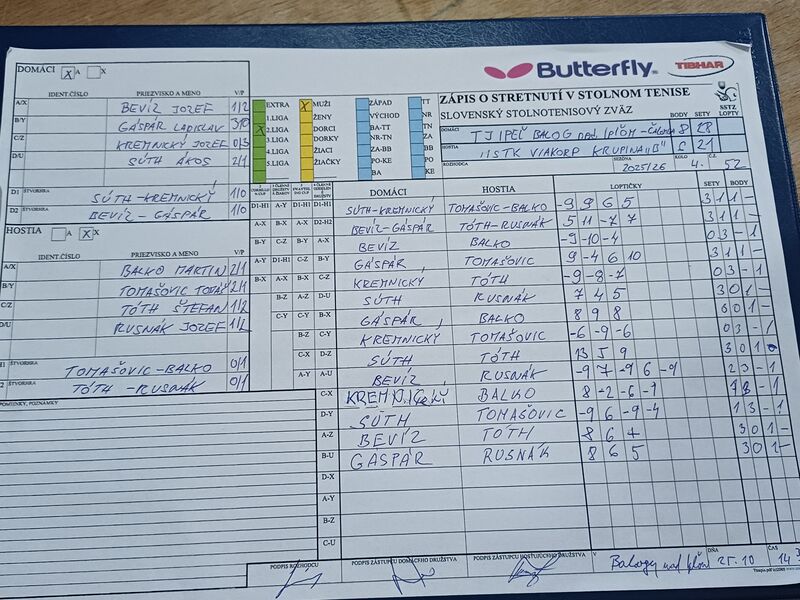 Butterfly
TIBHAR
DOMÁCI X A X
IDENT.ČÍSLO PRIEZVISKO A MENO V/P
A/X BEVÍZ JOZEF 1/2
B/Y GÁSPÁR LADISLAV 3/0
C/Z KREMNICKÝ JOZEF 0/3
D/U SÚTH ÁKOS 2/1
D1 ŠTVORHRA SÚTH-KREMNICKÝ 1/0
D2 ŠTVORHRA BEVÍZ-GÁSPÁR 1/0
HOSTIA A X X
IDENT.ČÍSLO PRIEZVISKO A MENO V/P
A/X BALKO MARTIN 2/1
B/Y TOMAŠOVIC TOMÁŠ 2/1
C/Z TÓTH ŠTEFAN 1/2
D/U RUSNÁK JOZEF 1/2
H1 ŠTVORHRA TOMAŠOVIC-BALKO 0/1
ŠTVORHRA TÓTH-RUSNÁK 0/1
POZNÁMKY
EXTRA X MUŽI ZÁPAD TT
1.LIGA ŽENY VÝCHOD NR
X 2.LIGA DORCI BA-TT TN
3.LIGA DORKY NR-TN ZA
4.LIGA ŽIACI ZA-BB BB
5.LIGA ŽIAČKY PO-KE PO
BA KE
ZÁPIS O STRETNUTÍ V STOLNOM TENISE
SLOVENSKÝ STOLNOTENISOVÝ ZVÄZ
SSTZ
DOMÁCI BODY SETY LOPTY
TJ IPEĽ BALOG nad Ipľom 8 28
HOSTIA MSTK VIAKORP KRUPINA "B" 6 21
ROZHODCA SEZÓNA 2025/26 KOLO 4. Č.Z. 52
DOMÁCI HOSTIA LOPTIČKY SETY BODY
D1-H1 A-Y D1-H1 D1-H1 SÚTH-KREMNICKÝ TOMAŠOVIC-BALKO -9 9 6 5 3 1 1 -
A-X B-X A-X D2-H2 BEVÍZ-GÁSPÁR TÓTH-RUSNÁK 5 11 -7 7 3 1 1 -
B-Y C-Z B-Y A-X BEVÍZ BALKO -9 -10 -4 0 3 - 1
A-Y D1-H1 C-Z B-Y GÁSPÁR TOMAŠOVIC 9 -4 6 10 3 1 1 -
B-X A-X B-X C-Z KREMNICKÝ TÓTH -9 -8 -7 0 3 - 1
B-Z A-Z D-U SÚTH RUSNÁK 7 4 5 3 0 1 -
C-Y C-Y B-X GÁSPÁR BALKO 8 9 8 3 0 1 -
B-Z C-Y KREMNICKÝ TOMAŠOVIC -6 -9 -6 0 3 - 1
C-X D-Z SÚTH TÓTH 13 5 9 3 0 1
A-Y A-U BEVÍZ RUSNÁK -9 7 -9 6 -9 2 3 - 1
C-X KREMNICKÝ BALKO 8 -2 -6 -7 1 3 - 1
D-Y SÚTH TOMAŠOVIC -9 6 -9 -4 1 3 - 1
A-Z BEVÍZ TÓTH 8 6 4 3 0 1 -
B-U GÁSPÁR RUSNÁK 8 6 5 3 0 1 -
D-X
A-Y
B-Z
C-U
PODPIS ROZHODCU PODPIS ZÁSTUPCU DOMÁCEHO DRUŽSTVA PODPIS ZÁSTUPCU HOSŤUJÚCEHO DRUŽSTVA V Balogu nad Ipľom DŇA 25.10 ČAS